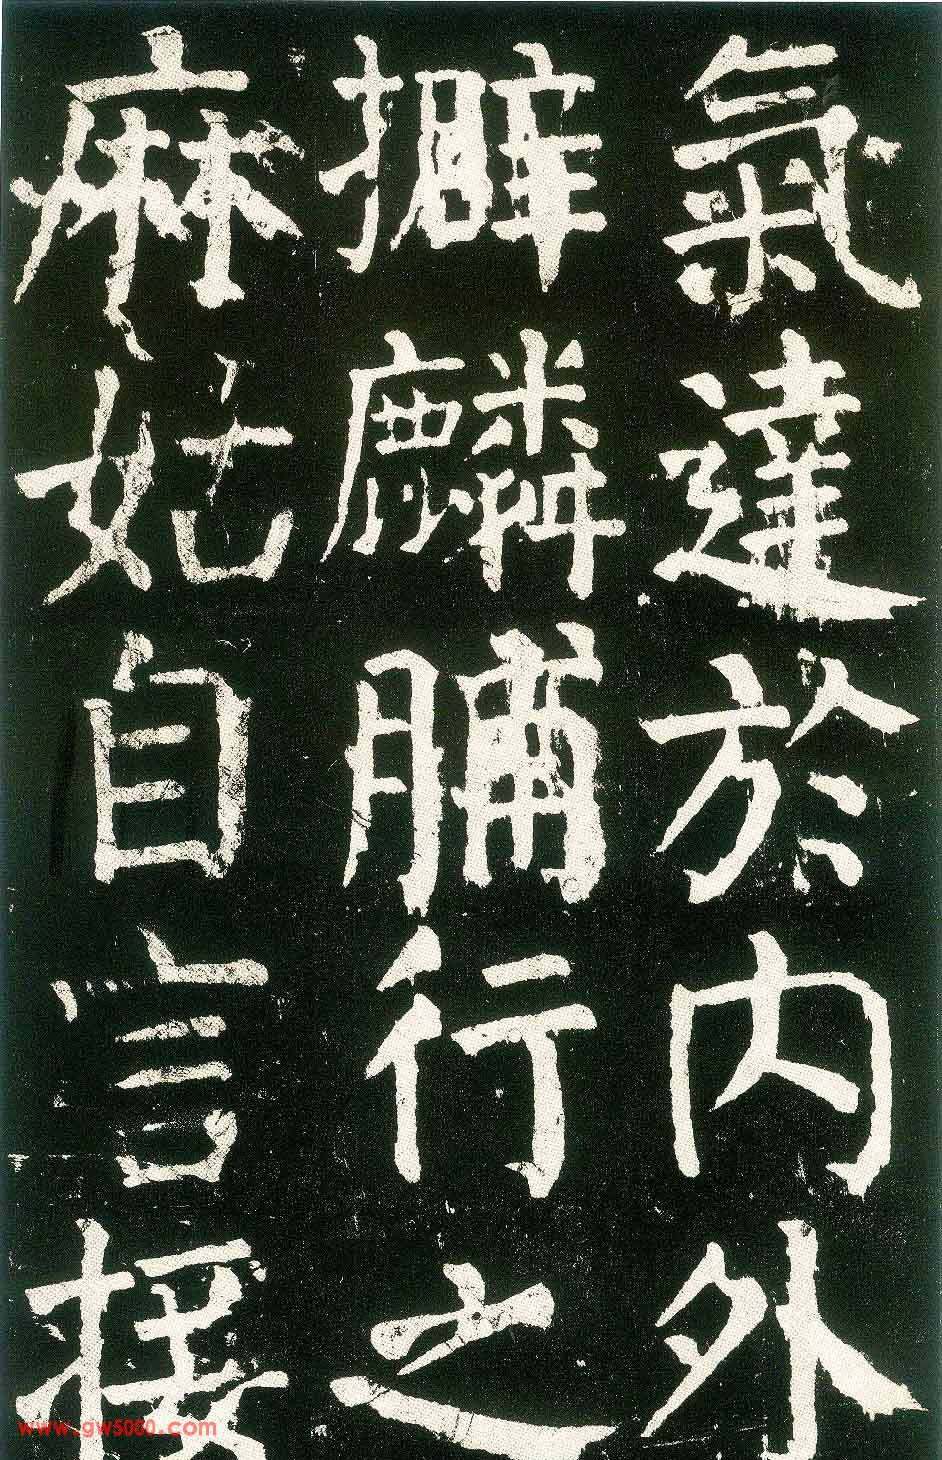 氣達於內外
擗麟脯行之
麻姑自言接
www.gw5000.com